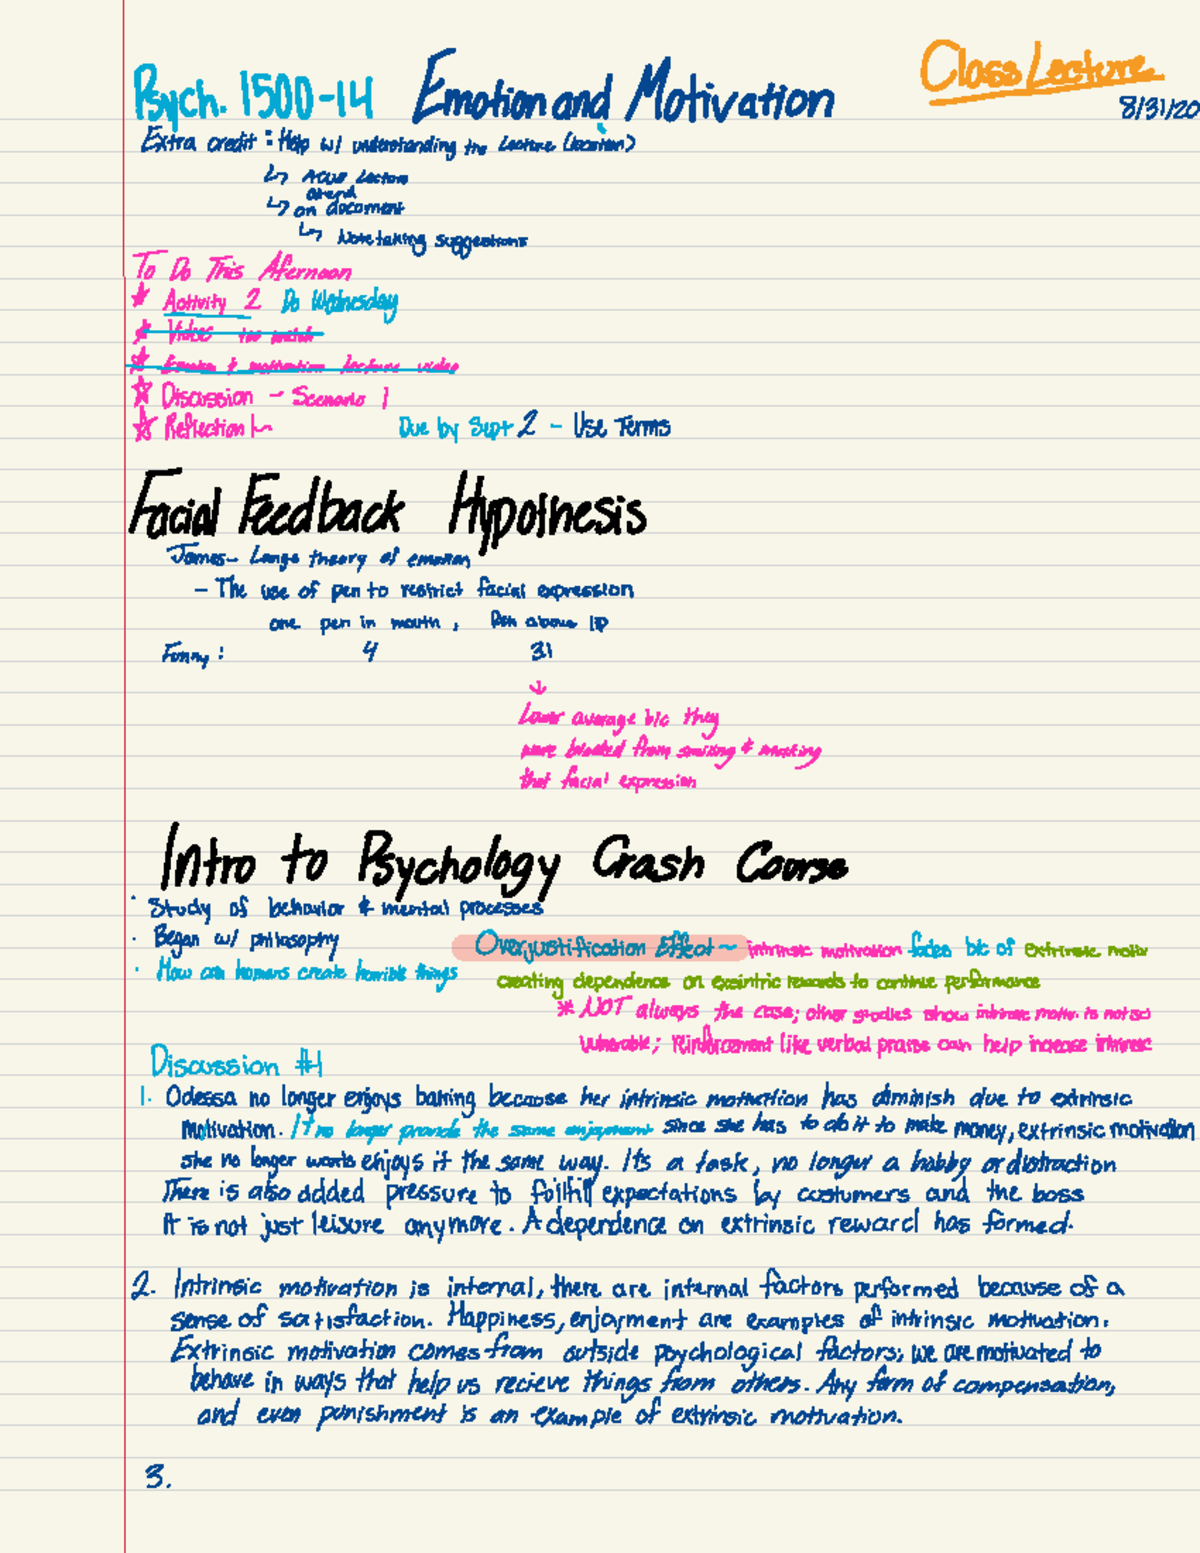 Psych. 1500-14 Emotion and Motivation Class Lecture
8/31/20
Extra credit: Help w/ understanding the Lecture (location)
↳ Lecture
↳ on document
↳ Notetaking suggestions
To Do This Afernoon
★ Activity 2 Do Wednesday
★ Video too watch
★ Emotion & motivation lecture video
☆ Discussion - Scenario 1
☆ Reflection 1 Due by Sept 2 - Use Terms
Facial Feedback Hypothesis
James-Lange theory of emotion
- The use of pen to restrict facial expression
one pen in mouth, Pen above lip
Funny: 4 31
↓
Lower average b/c they
were blocked from smiling & making
that facial expression
Intro to Psychology Crash Course
· Study of behavior & mental processes
· Began w/ philosophy
Overjustification Effect ~ intrinsic motivation fades b/c of extrinsic motiv
· How can humans create horrible things
creating dependence on exsintric rewards to continue performance
* NOT always the case; other studies show intrinsic motiv. is not so
vulnerable; reinforcement like verbal praise can help increase intrinsic
Discussion #1
1. Odessa no longer enjoys baking because her intrinsic motivation has diminish due to extrinsic
motivation. It no longer provide the same enjoyment since she has to do it to make money, extrinsic motivation
she no longer enjoys it the same way. Its a task, no longer a hobby or distraction
There is also added pressure to fulfill expectations by customers and the boss
It is not just leisure anymore. A dependence on extrinsic reward has formed.
2. Intrinsic motivation is internal, there are internal factors performed because of a
sense of satisfaction. Happiness, enjoyment are examples of intrinsic motivation.
Extrinsic motivation comes from outside psychological factors; we are motivated to
behave in ways that help us recieve things from others. Any form of compensation,
and even punishment is an example of extrinsic motivation.
3.